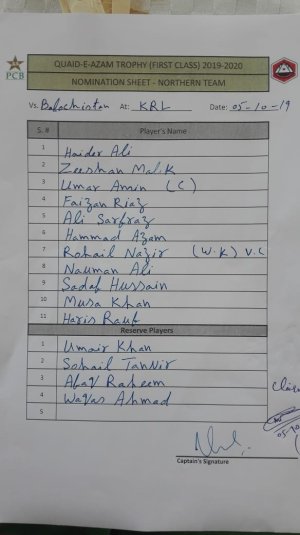 PCB
QUAID-E-AZAM TROPHY (FIRST CLASS) 2019-2020
NOMINATION SHEET - NORTHERN TEAM
Vs. Balochistan At: KRL Date: 05-10-19
S. # Player's Name
1 Haider Ali
2 Zeeshan Malik
3 Umar Amin (C)
4 Faizan Riaz
5 Ali Sarfraz
6 Hammad Azam
7 Rohail Nazir (W.K) V.C
8 Nauman Ali
9 Sadaf Hussain
10 Musa Khan
11 Haris Rauf
Reserve Players
1 Umair Khan
2 Sohail Tanvir
3 Raheem
4 Waqas Ahmad
5
Captain's Signature